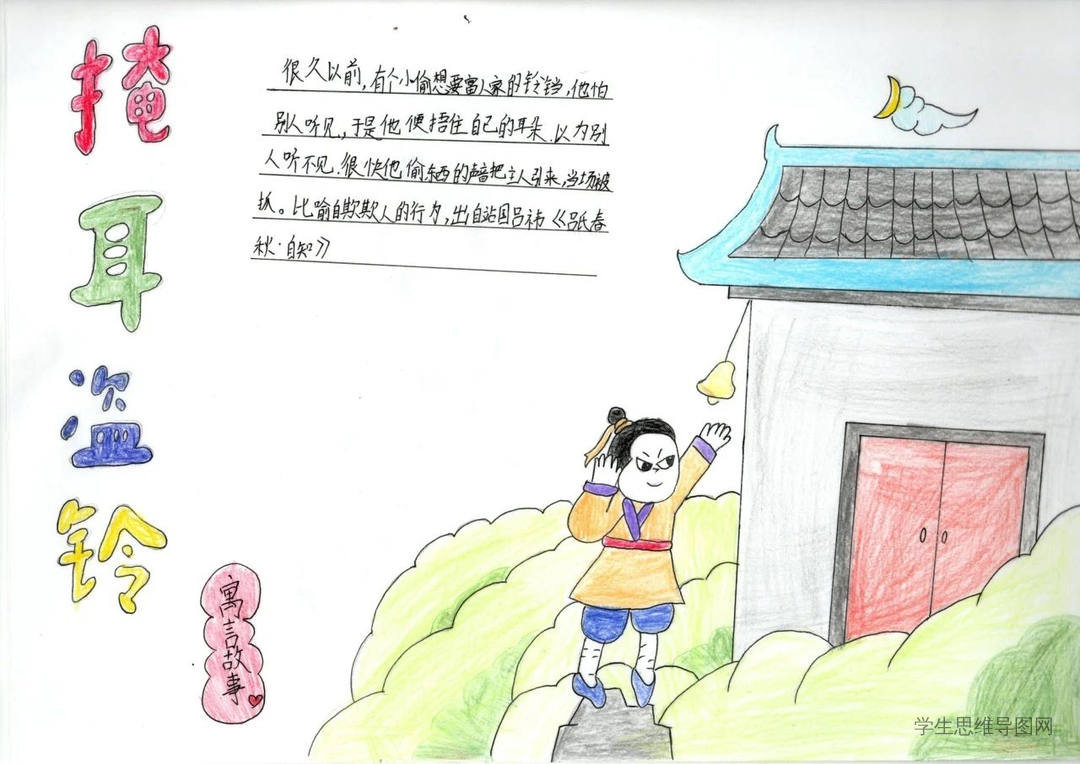 掩耳盗铃
很久以前,有个小偷想要富人家的铃铛,他怕
别人听见,于是他便捂住自己的耳朵.以为别
人听不见.很快他偷东西的声音把主人引来,当场被
抓。比喻自欺欺人的行为,出自战国吕韦《吕氏春
秋·自知》
寓言故事
学生思维导图网